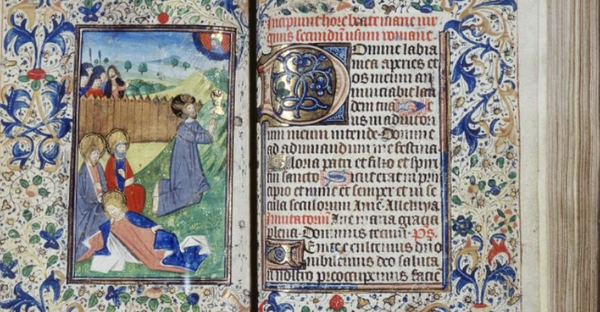 Incipiunt hore beate marie uir
ginis secundũ usum romane.
Domine labia
mea aperies et
os meum an
nunciabit laud
dem tuã D
us in adiutori
um meum intende. Domine
ad adiuuandum me festina
Gloria patri et filio et spiri
tui sancto Sicut erat in prin
cipio et nunc et semper et in se
cula seculorum Amẽ. Alleluya
Inuitatoriũ Aue maria gracia
plena. Dominus tecum. Ps
Uenite exultemus dño
iubilemus deo saluta
ri nostro preoccupemus facie